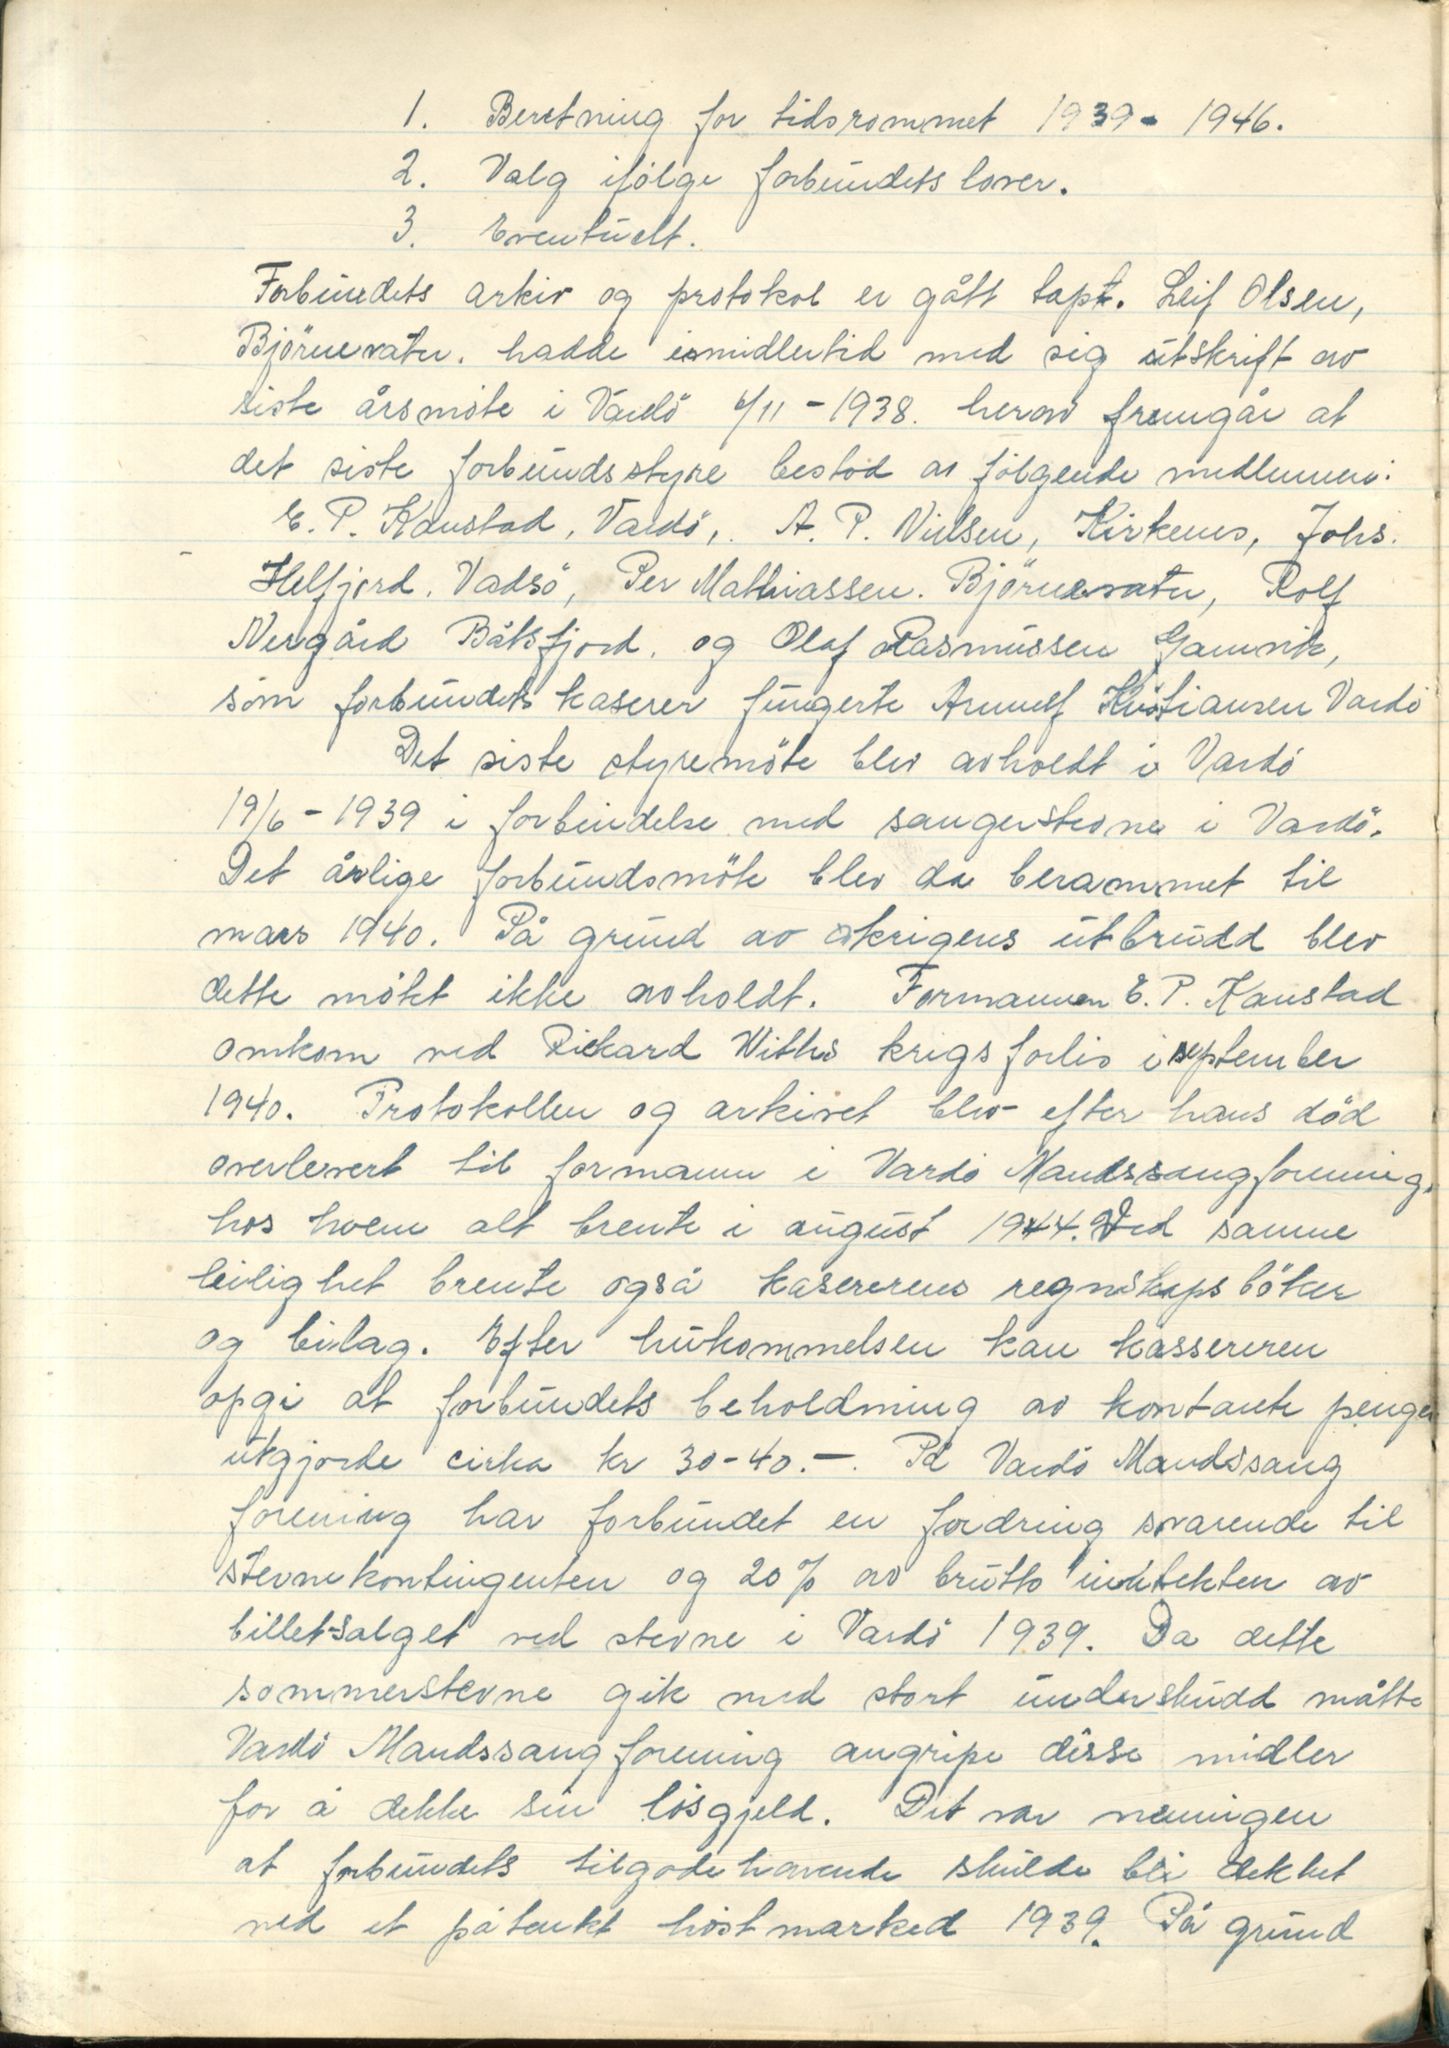 1. Beretning for tidsrommet 1939 - 1946.
2. Valg ifølge forbundets lover.
3. Eventuelt.
Forbundets arkiv og protokol er gått tapt. Leif Olsen,
Björnevatn. hadde imidlertid med sig utskrift av
siste årsmöte i Vardö 6/11 - 1938. herav fremgår at
det siste forbundsstyre bestod av følgende medlemmer:
E. P. Kanstad, Vardö, A. P. Nilsen, Kirkenes, Johs.
Helfjord, Vadsö, Per Mathiassen. Björnevatn, Rolf
Nergård Båtsfjord. og Olaf Rasmussen Gamvik,
som forbundets kaserer fungerte Arnulf Kristiansen Vardö
Det siste styremöte blev avholdt i Vardö
19/6 - 1939 i forbindelse med sangerstevne i Vardö.
Det årlige forbundsmöte blev da berammet til
mars 1940. På grund av krigens utbrudd blev
dette mötet ikke avholdt. Formannen E. P. Kanstad
omkom ved Rickard Withs krigsforlis i september
1940. Protokollen og arkivet blev efter hans död
overlevert til formann i Vardö Mandssangforening.
hos hvem alt brente i august 1944. Ved samme
leilighet brente også kasererens regnskapsböker
og bilag. Efter hukommelsen kan kassereren
opgi at forbundets beholdning av kontante penger
utgjorde cirka kr 30-40.-. På Vardö Mandssang
forening har forbundet en fordring svarende til
stevnekontingenten og 20% av brutto inntekten av
billet-salget ved stevne i Vardö 1939. Da dette
sommerstevne gik med stort underskudd måtte
Vardö Mandssangforening angripe disse midler
for å dekke sin lösgjeld. Det var meningen
at forbundets tilgodehavende skulde bli dekket
ved et påtenkt höstmarked 1939. På grund